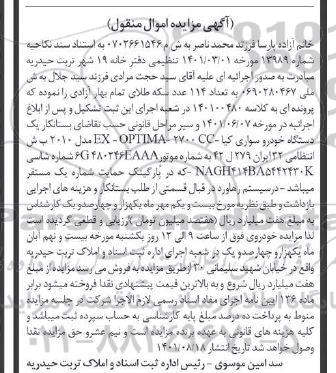 (آگهی مزایده اموال منقول)
خانم آزاده پارسا فرزند محمد ناصر به ش م ۰۷۰۳۶۶۱۵۴۶ به استناد سند نکاحیه
شماره ۱۳۹۸۹ مورخه ۱۴۰۱/۰۳/۰۱ تنظیمی دفتر خانه ۱۹ شهر تربت حیدریه
مبادرت به صدور اجرائیه ای علیه آقای سید حجت مرادی فرزند سید جلال به ش
ملی ۰۶۹۰۲۸۰۴۶۷ به تعداد ۱۱۴ عدد سکه طلای تمام بهار آزادی را نموده که
پرونده ای به کلاسه ۱۴۰۱۰۰۴۸۰ در شعبه اجرای این ثبت تشکیل و پس از ابلاغ
اجرائیه در مورخه ۱۴۰۱/۰۶/۰۷ و سیر مراحل قانونی حسب تقاضای بستانکار یک
دستگاه خودرو سواری کیا -EX - OPTIMA- ۲۷۰۰ CC مدل ۲۰۱۰ ب ش
انتظامی ۳۲ ایران ۲۷۹ ل ۴۲ به شماره موتور G6 ۴۸۰۳۴۶EAAA شماره شاسی
NAGH۴۱۴BA۵۴۴۲۴۳۰K -که در پارکینگ حمایت شماره یک مستقر
میباشد - در سیستم رهاورد در قبال قسمتی از طلب بستانکار و هزینه های اجرایی
بازداشت و طبق نظریه مورخ بیست و یکم مهر ماه یکهزار و چهارصد و یک کارشناس
به مبلغ هفت میلیارد ریال (هفتصد میلیون تومان) ارزیابی و قطعی گردیده است
لذا مزایده خودروی فوق از ساعت ۹ الی ۱۲ روز یکشنبه مورخه بیست و نهم آبان
ماه یکهزار و چهارصد و یک در شعبه اجرای اداره ثبت اسناد و املاک تربت حیدریه
واقع در خیابان شهید سلیمانی ۳۰ از طریق مزایده به فروش می رسد مزایده از مبلغ
هفت میلیارد ریال شروع و به بالاترین قیمت پیشنهادی نقدا فروخته میشود برابر
ماده ۱۳۶ آیین نامه اجرای مفاد اسناد رسمی لازم الاجرا شرکت در جلسه مزایده
منوط به پرداخت ده درصد مبلغ پایه کارشناسی به حساب سپرده ثبت میباشد و
کلیه هزینه های قانونی به عهده برنده مزایده است و نیم عشر و حق مزایده نقدا
وصول خواهد شد تاریخ انتشار ۱۴۰۱/۰۸/۱۸
سد امین موسوی - رئیس اداره ثبت اسناد و املاک تربت حیدریه